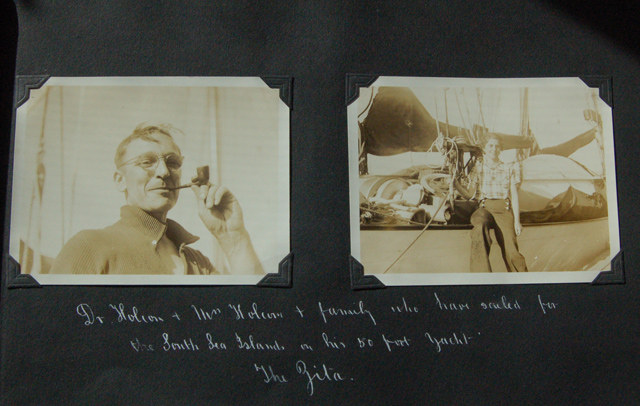 Dr Holcom + Mrs Holcom + family who have sailed for
the South Sea Islands on his 50 foot Yacht
The Zita.